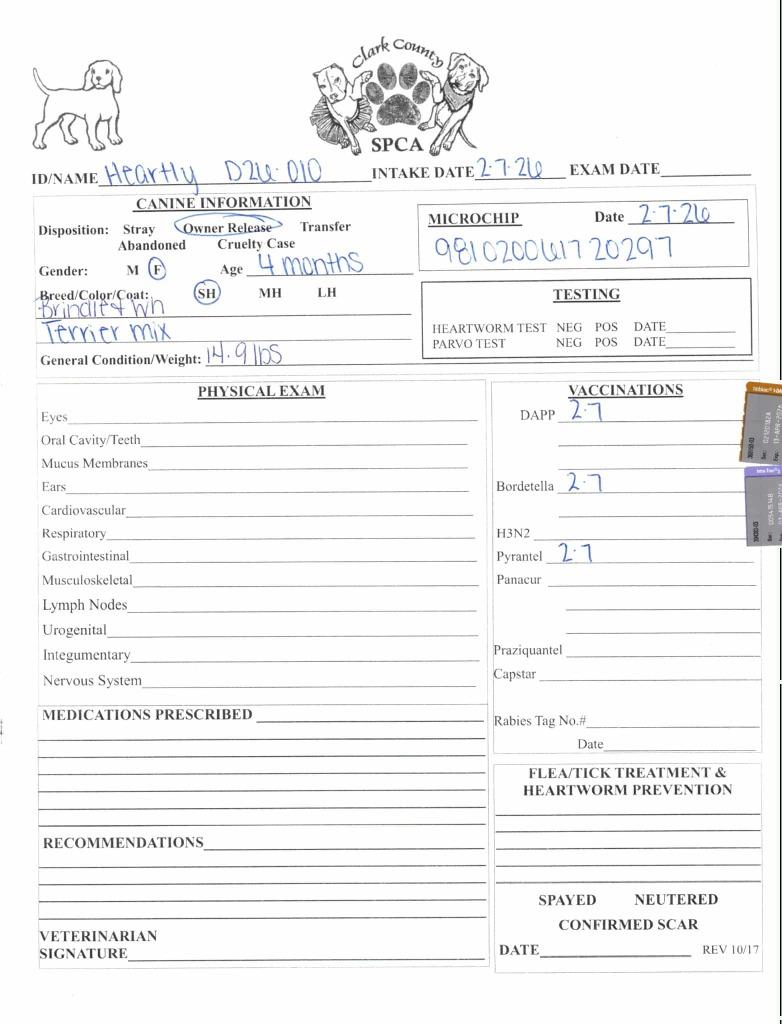 Clark County
SPCA
ID/NAME Heartly D26-010 INTAKE DATE 2-7-26 EXAM DATE
CANINE INFORMATION
Disposition: Stray Owner Release Transfer
Abandoned Cruelty Case
Gender: M F Age 4 months
Breed/Color/Coat: SH MH LH
Brindle + Wh
Terrier mix
General Condition/Weight: 14.9 lbs
MICROCHIP Date 2-7-26
981020061720297
TESTING
HEARTWORM TEST NEG POS DATE
PARVO TEST NEG POS DATE
PHYSICAL EXAM
Eyes
Oral Cavity/Teeth
Mucus Membranes
Ears
Cardiovascular
Respiratory
Gastrointestinal
Musculoskeletal
Lymph Nodes
Urogenital
Integumentary
Nervous System
MEDICATIONS PRESCRIBED
RECOMMENDATIONS
VETERINARIAN
SIGNATURE
VACCINATIONS
DAPP 2-7
Bordetella 2-7
H3N2
Pyrantel 2-7
Panacur
Praziquantel
Capstar
Rabies Tag No.#
Date
FLEA/TICK TREATMENT &
HEARTWORM PREVENTION
SPAYED NEUTERED
CONFIRMED SCAR
DATE REV 10/17